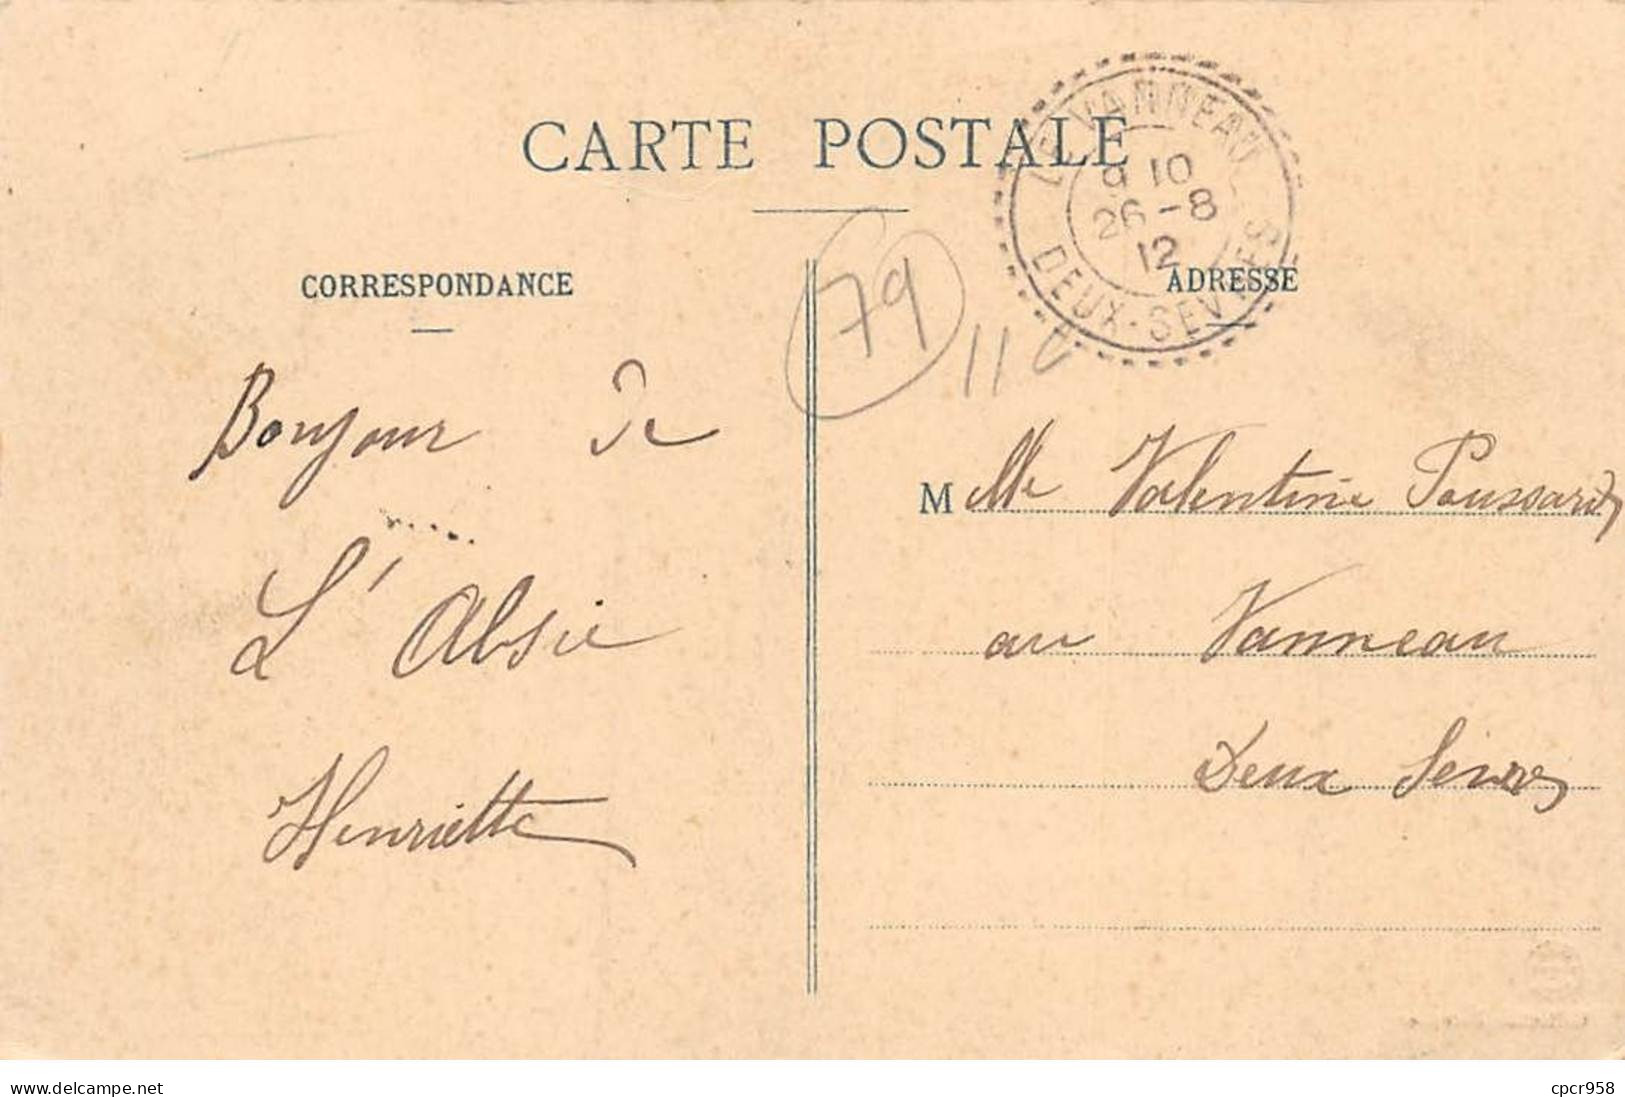 CARTE POSTALE
LE VANNEAU
9 10
26-8
12
DEUX-SEVRES
CORRESPONDANCE
ADRESSE
79
11
Bonjour de
L'Absie
Henriette
Melle Valentine Poussard
au Vanneau
Deux Sèvres
www.delcampe.net
cpcr958